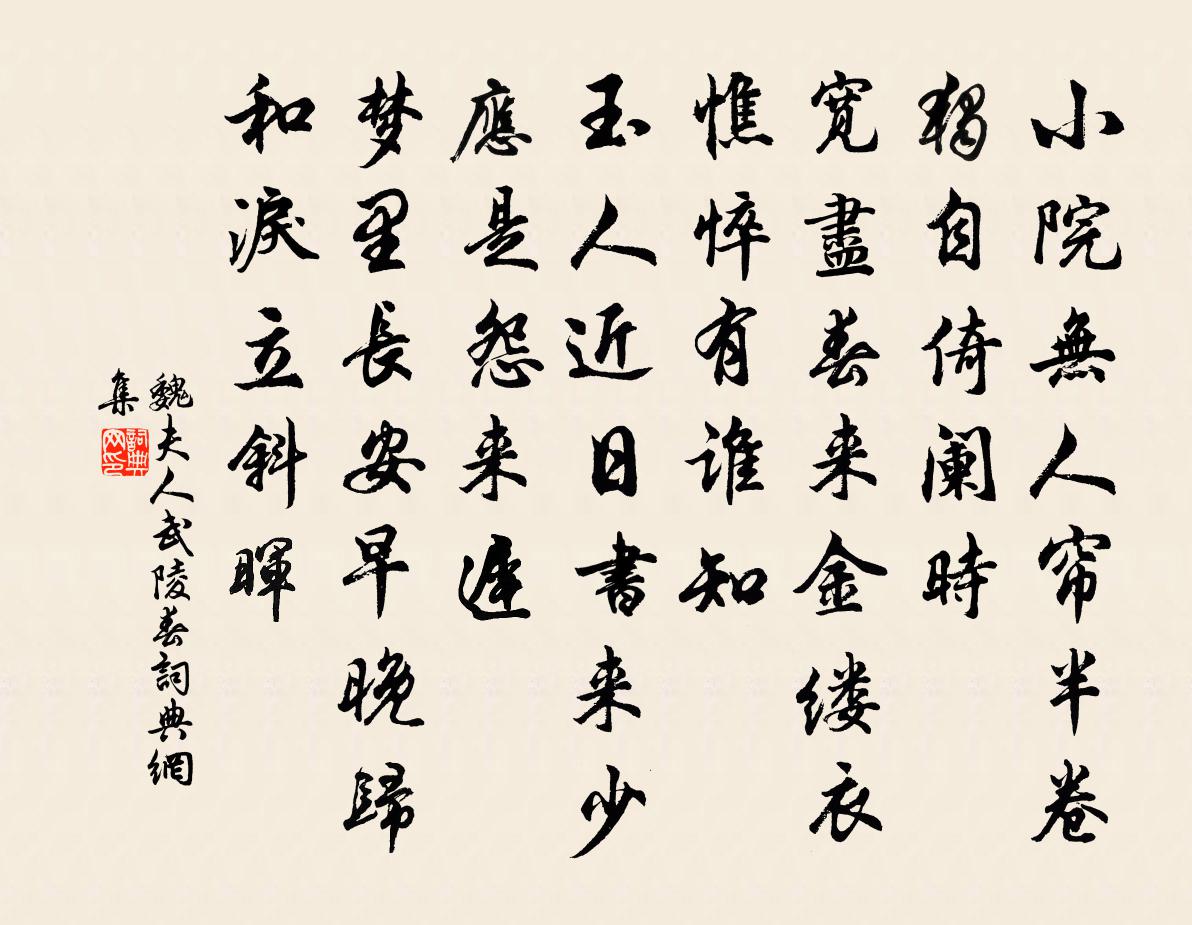 小院無人帘半卷
獨自倚阑時
寬盡春来金缕衣
憔悴有谁知
玉人近日書来少
應是怨来遲
梦里長安早晚歸
和淚立斜暉
魏夫人武陵春詞典網
集
詞典网印